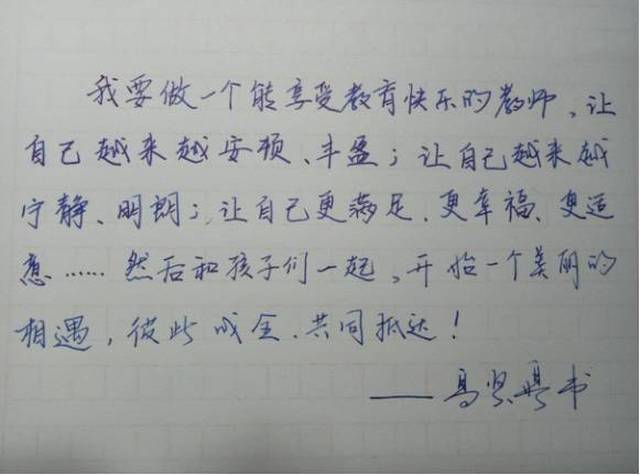 我要做一个能享受教育快乐的教师、让
自己越来越安顿、丰盈；让自己越来越
宁静、明朗；让自己更满足、更幸福、更适
意……然后和孩子们一起，开始一个美丽的
相遇，彼此成全、共同抵达！
——马贤 书